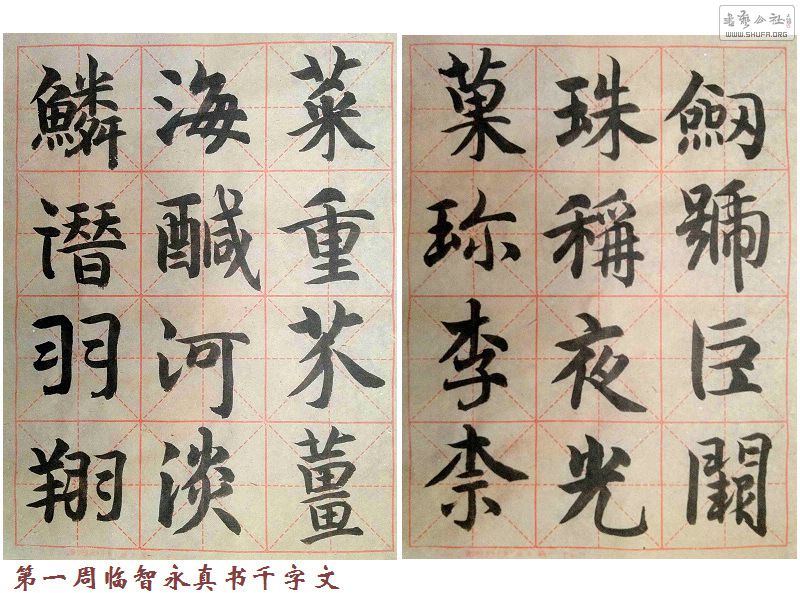 劒號巨闕
珠稱夜光
菓珍李柰
菜重芥薑
海醎河淡
鱗潛羽翔
第一周临智永真书千字文
WWW.SHUFA.ORG